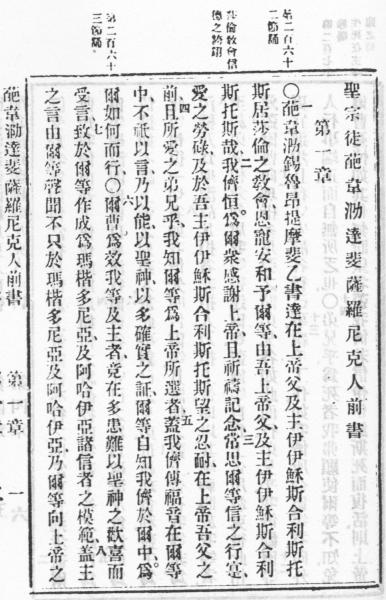 聖宗徒葩韋泐達斐薩羅尼克人前書
第一章
○葩韋泐錫魯昂提摩斐乙書達在上帝父及主伊伊穌斯合利斯托
斯居莎倫之敎會恩寵安和予爾等由吾上帝父及主伊伊穌斯合利
斯托斯哉我儕恒爲爾衆感謝上帝且祈禱記念常思爾等信之行寔
愛之勞碌及於吾主伊伊穌斯合利斯托斯望之忍耐在上帝吾父之
前且所愛之弟兄乎我知爾等爲上帝所選者蓋我儕傳福音在爾等
中不祇以言乃以能以聖神以多確實之証爾等自知我儕於爾中爲
爾如何而行○爾曹爲效我等及主者竟在多患難以聖神之歡喜而
受言致於爾等作成爲瑪楷多尼亞及阿哈伊亞諸信者之模範蓋主
之言由爾等聲聞不只於瑪楷多尼亞及阿哈伊亞乃爾等向上帝之
第二百六十
二節誦
倫敎會信
德之
第二百六十
三節誦
葩韋泐達斐薩羅尼克人前書
第一章
一